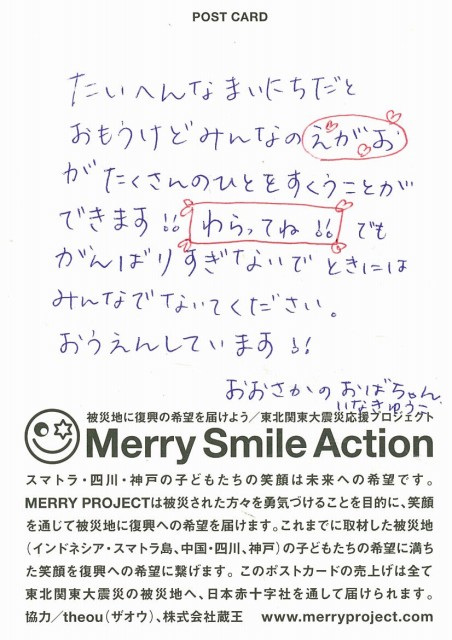 POST CARD
たいへんなまいにちだと
おもうけどみんなのえがお
がたくさんのひとをすくうことが
できます!! わらってね!! でも
がんばりすぎないでときには
みんなでないてください。
おうえんしています!!
おおさかのおばちゃん
いなきゅうこ
被災地に復興の希望を届けよう/東北関東大震災応援プロジェクト
Merry Smile Action
スマトラ・四川・神戸の子どもたちの笑顔は未来への希望です。
MERRY PROJECTは被災された方々を勇気づけることを目的に、笑顔
を通じて被災地に復興への希望を届けます。これまでに取材した被災地
(インドネシア・スマトラ島、中国・四川、神戸)の子どもたちの希望に満ち
た笑顔を復興への希望に繋げます。このポストカードの売上げは全て
東北関東大震災の被災地へ、日本赤十字社を通して届けられます。
協力/theou(ザオウ)、株式会社蔵王 www.merryproject.com